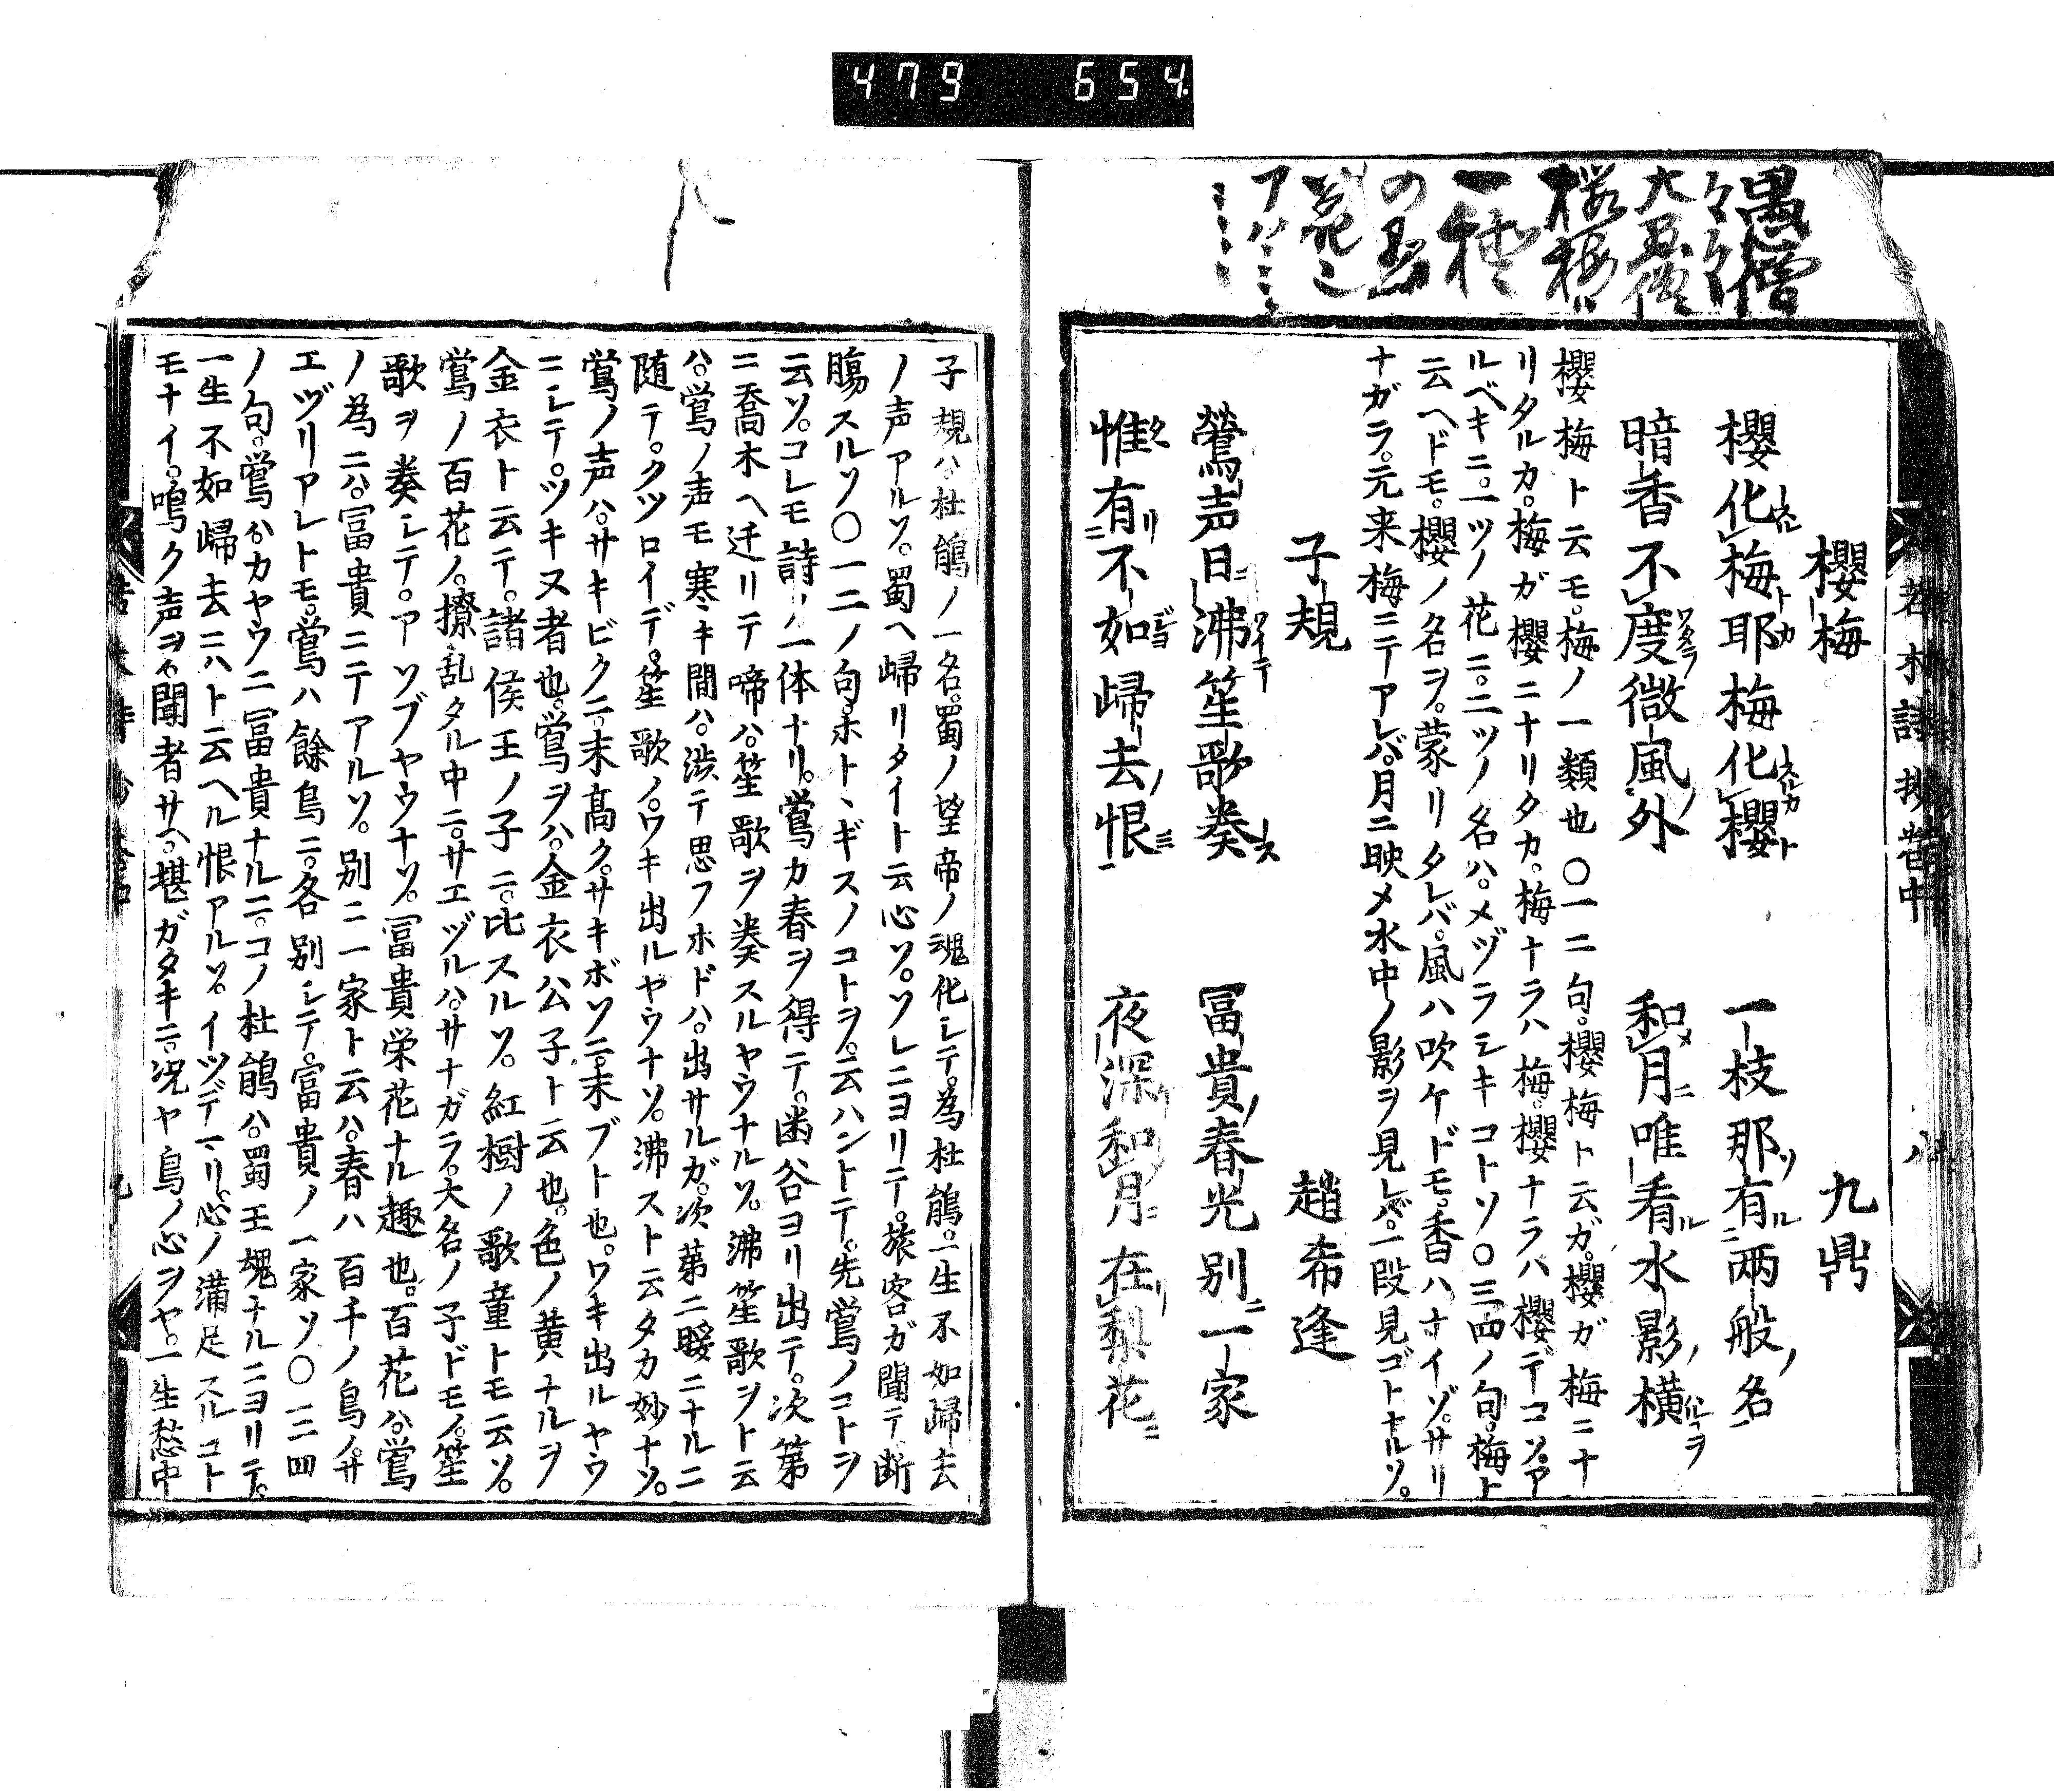 479 654
愚僧
一種
若木詩抄 中
八
櫻梅 九鼎
櫻化梅耶梅化櫻 一枝那有兩般名
暗香不度微風外 和月唯看水影横
櫻梅ト云モ。梅ノ一類也〇一二句。櫻梅ト云ガ。櫻ガ梅ニナ
リタルカ。梅ガ櫻ニナリタカ。梅ナラハ梅。櫻ナラハ櫻デコソ。ア
ルベキニ。一ツノ花ニ。二ツノ名ハ。メヅラシキコトソ〇三四ノ句。梅ト
云ヘドモ。櫻ノ名ヲ。蒙リタレバ。風ハ吹ケドモ。香ハナイゾ。サリ
ナガラ。元来梅ニテアレバ。月ニ映メ水中ノ影ヲ見レバ。一段見ゴトナルソ。
子規 趙希逢
鶯声日沸笙歌奏 冨貴春光別一家
惟有不如歸去恨 夜深和月在梨花
子規ハ。杜鵑ノ一名。蜀ノ望帝ノ魂化シテ。為杜鵑。一生不如歸去
ノ声アルソ。蜀ヘ歸リタイト云心ソ。ソレニヨリテ。旅客ガ聞テ断
膓スルソ〇一二ノ句。ホトヽギスノコトヲ。云ハントテ。先鶯ノコトヲ
云ソ。コレモ詩ノ一体ナリ。鶯カ春ヲ得テ。幽谷ヨリ出テ。次第
ニ喬木ヘ迁リテ啼ハ。笙歌ヲ奏スルヤウナルソ。沸笙歌ヲト云
ハ。鶯ノ声モ寒キ間ハ。渋テ思フホドハ。出サルガ。次第ニ暖ニナルニ
随テ。クツロイデ。笙歌ノ。ワキ出ルヤウナソ。沸スト云タカ妙ナソ。
鶯ノ声ハ。サキビクニ。末高ク。サキボソニ。末ブト也。ワキ出ルヤウ
ニシテ。ツキヌ者也。鶯ヲハ。金衣公子ト云也。色ノ黄ナルヲ
金衣ト云テ。諸侯王ノ子ニ。比スルソ。紅樹ノ歌童トモ云ソ。
鶯ノ百花ノ。撩乱タル中ニ。サエヅルハ。サナガラ。大名ノ子ドモノ。笙
歌ヲ奏シテ。アソブヤウナソ。冨貴栄花ナル趣也。百花ハ。鶯
ノ為ニハ。冨貴ニテアルソ。別ニ一家ト云ハ。春ハ百千ノ鳥ノ。サ
エヅリアレトモ。鶯ハ餘鳥ニ。各別シテ。富貴ノ一家ソ〇三四
ノ句。鶯ハカヤウニ冨貴ナルニ。コノ杜鵑ハ。蜀王魂ナルニヨリテ。
一生不如歸去ニハト云ヘル恨アルソ。イツデマリ。心ノ満足スルコト
モナイ。鳴ク声ヲハ聞者サヘ。堪ガタキニ。况ヤ鳥ノ心ヲヤ。一生愁中
九